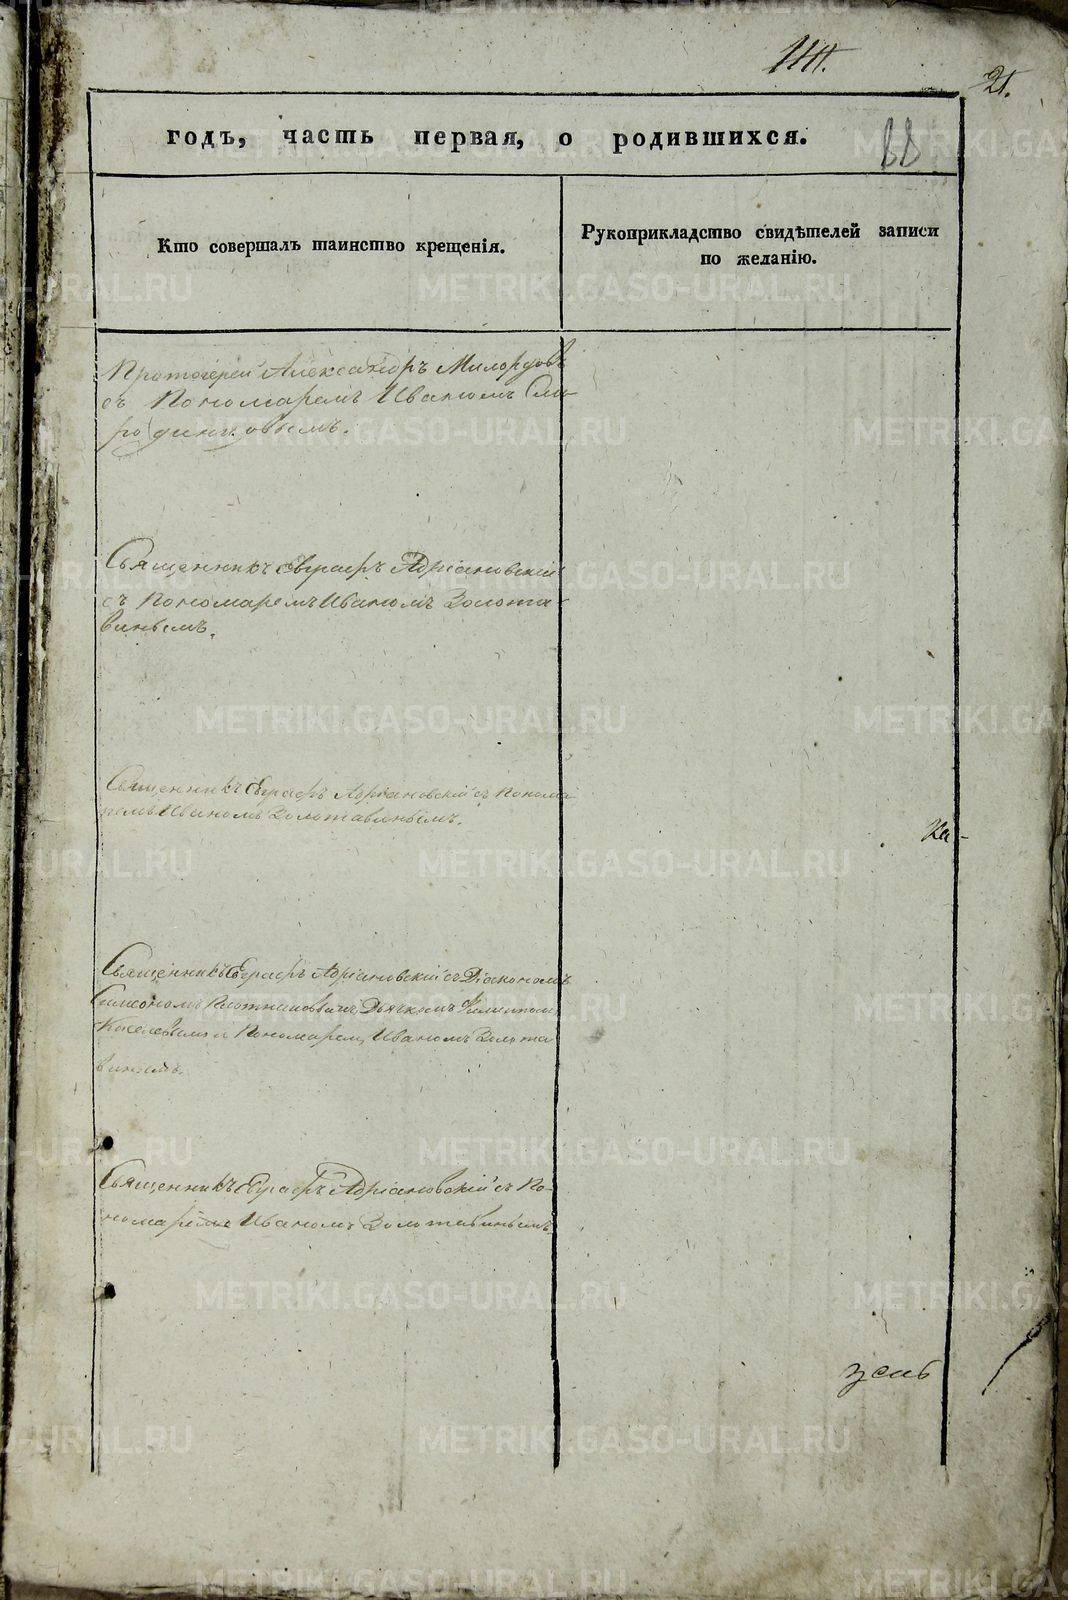 21.
годъ, часть первая, о родившихся.
Кто совершалъ таинство крещенія.
Рукоприкладство свидѣтелей записи
по желанію.
Протоіерей Александръ Милордовъ
съ Пономаремъ Иваномъ Смо-
родинцовымъ.
Священникъ Евграфъ Адріановскій
съ Пономаремъ Иваномъ Золота-
винымъ.
Священникъ Евграфъ Адріановскій съ Понома
ремъ Иваномъ Золотавинымъ.
Ка-
Священникъ Евграфъ Адріановскій съ Діакономъ
Симеономъ Плотниковымъ Дьячкомъ Филиппом
Киселевымъ и Пономарем Иваномъ Золота
винымъ.
Священникъ Евграфъ Адріановскій съ По-
номаремъ Иваномъ Золотавинымъ
METRIKI.GASO-URAL.RU